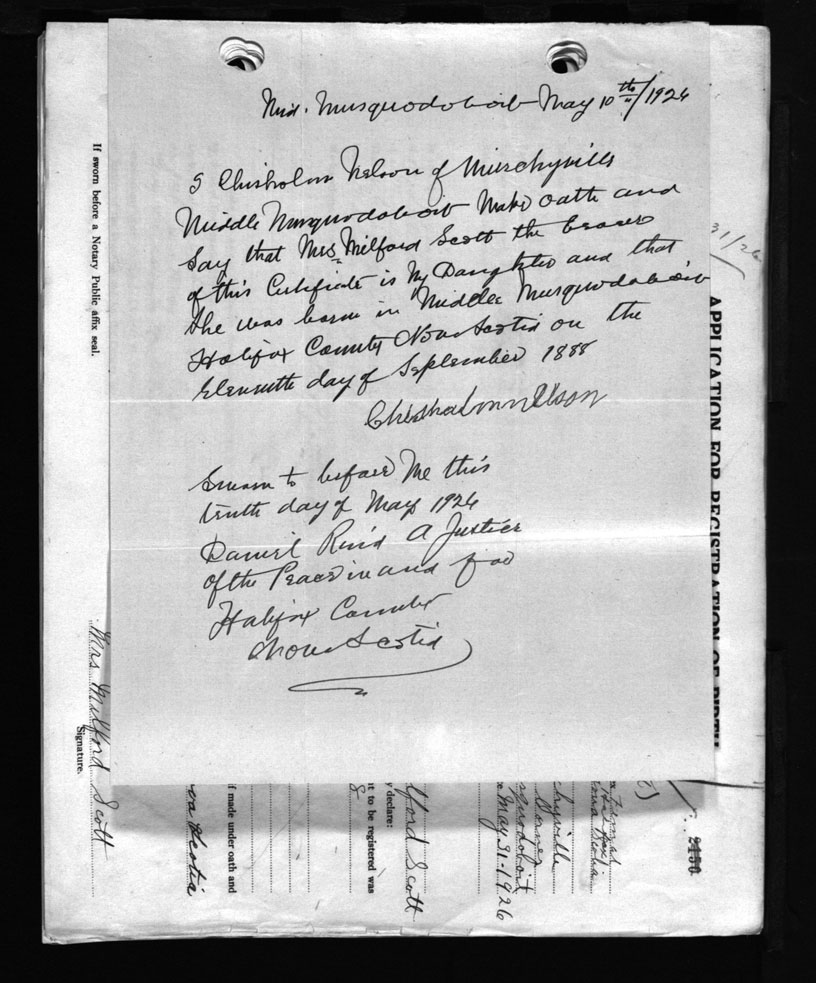 Mid. Musquodoboit May 10th/1926
I Chisholm Nelson of Murchyville
Middle Musquodoboit Make oath and
Say that Mrs Milford Scott the bearer
of this Certificate is My Daughter and that
She was born in Middle Musquodoboit
Halifax County Nova Scotia on the
Elevnth day of September 1888
Chisholm Nelson
Sworn to before Me this
tenth day of May 1926
Daniel Reid A Justice
of the Peace in and for
Halifax County
Nova Scotia
If sworn before a Notary Public affix seal.
Mrs Milford Scott
Signature.
31/26
APPLICATION FOR REGISTRATION OF BIRTH
2150
Scotia
chyville
May 31-1926
lford Scott
y declare:
t to be registered was
8
if made under oath and
va Scotia